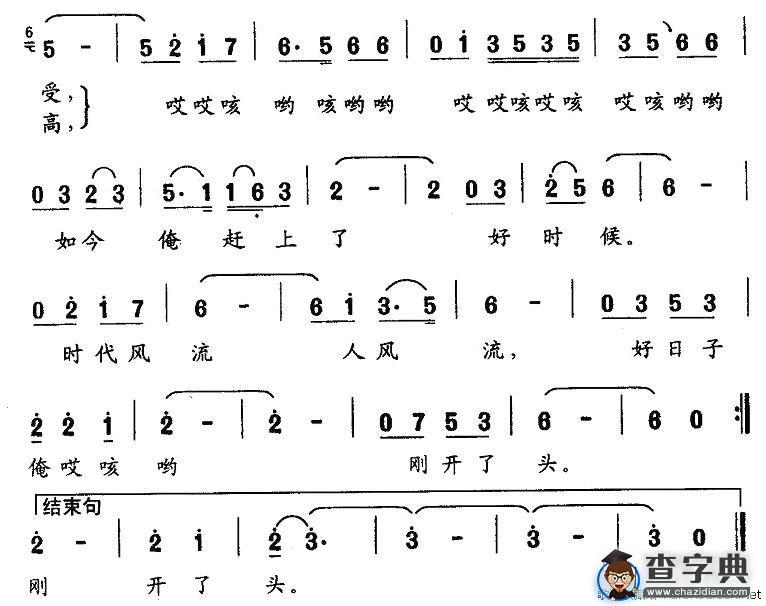 6
5 - | 5 2 1 7 | 6· 5 6 6 | 0 1 3 5 3 5 | 3 5 6 6 |
受,
高,} 哎哎咳 哟 咳哟哟 哎 哎咳哎咳 哎咳哟哟
0 3 2 3 | 5· 1 1 6 3 | 2 - | 2 0 3 | 2 5 6 | 6 - |
如今 俺 赶上了 好时候。
0 2 1 7 | 6 - | 6 1 3· 5 | 6 - | 0 3 5 3 |
时代风流 人风 流, 好日子
2 2 1 | 2 - | 2 - | 0 7 5 3 | 6 - | 6 0 :||
俺哎咳 哟 刚开了 头。
结束句
2 - | 2 1 | 2 3· | 3 - | 3 - | 3 0 ||
刚 开了 头。
查字典
www.chazidian.com